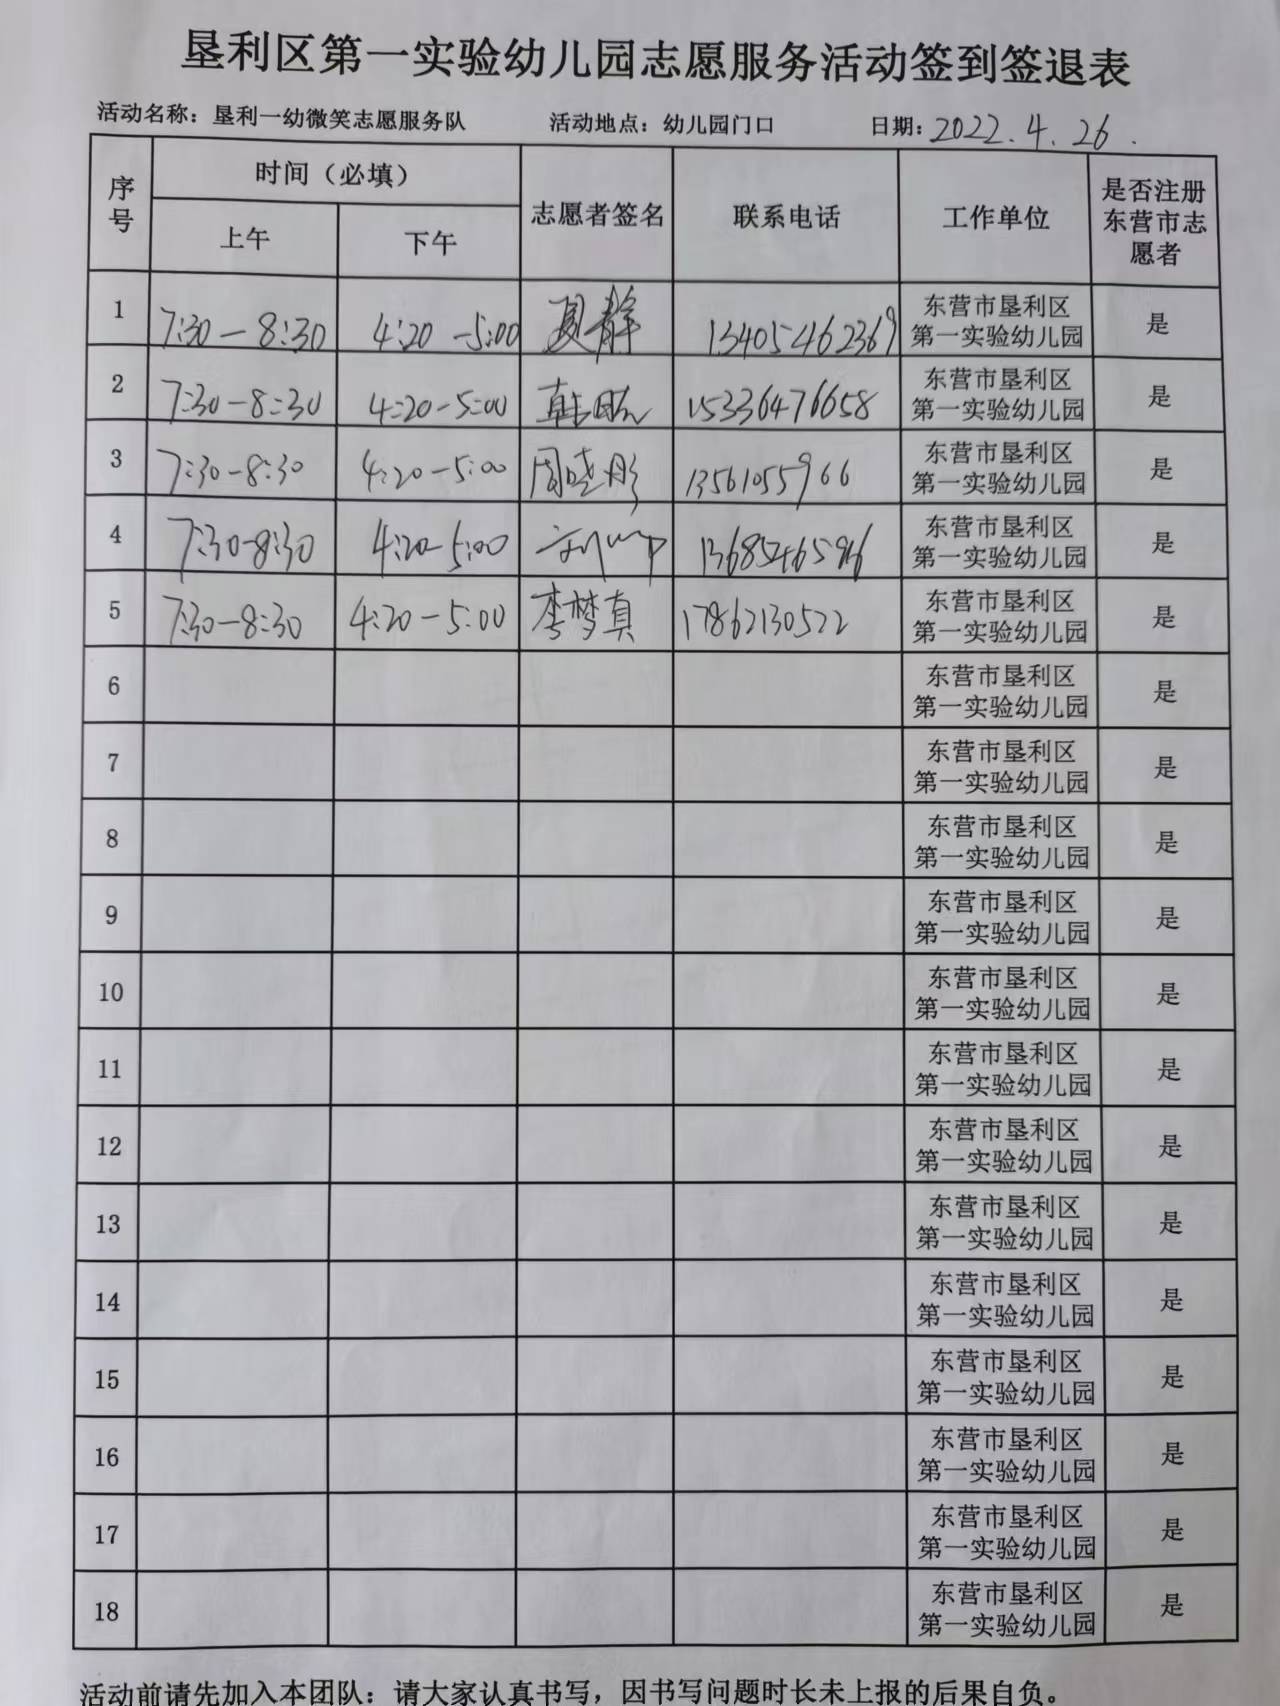 垦利区第一实验幼儿园志愿服务活动签到签退表
活动名称：垦利一幼微笑志愿服务队 活动地点：幼儿园门口 日期：2022.4.26.
序号 时间（必填） 志愿者签名 联系电话 工作单位 是否注册东营市志愿者
上午 下午
1 7:30-8:30 4:20-5:00 夏静 13405462369 东营市垦利区第一实验幼儿园 是
2 7:30-8:30 4:20-5:00 韩 15336476658 东营市垦利区第一实验幼儿园 是
3 7:30-8:30 4:20-5:00 周晓彤 13561055966 东营市垦利区第一实验幼儿园 是
4 7:30-8:30 4:20-5:00 东营市垦利区第一实验幼儿园 是
5 7:30-8:30 4:20-5:00 李梦真 17862130522 东营市垦利区第一实验幼儿园 是
6 东营市垦利区第一实验幼儿园 是
7 东营市垦利区第一实验幼儿园 是
8 东营市垦利区第一实验幼儿园 是
9 东营市垦利区第一实验幼儿园 是
10 东营市垦利区第一实验幼儿园 是
11 东营市垦利区第一实验幼儿园 是
12 东营市垦利区第一实验幼儿园 是
13 东营市垦利区第一实验幼儿园 是
14 东营市垦利区第一实验幼儿园 是
15 东营市垦利区第一实验幼儿园 是
16 东营市垦利区第一实验幼儿园 是
17 东营市垦利区第一实验幼儿园 是
18 东营市垦利区第一实验幼儿园 是
活动前请先加入本团队：请大家认真书写，因书写问题时长未上报的后果自负。